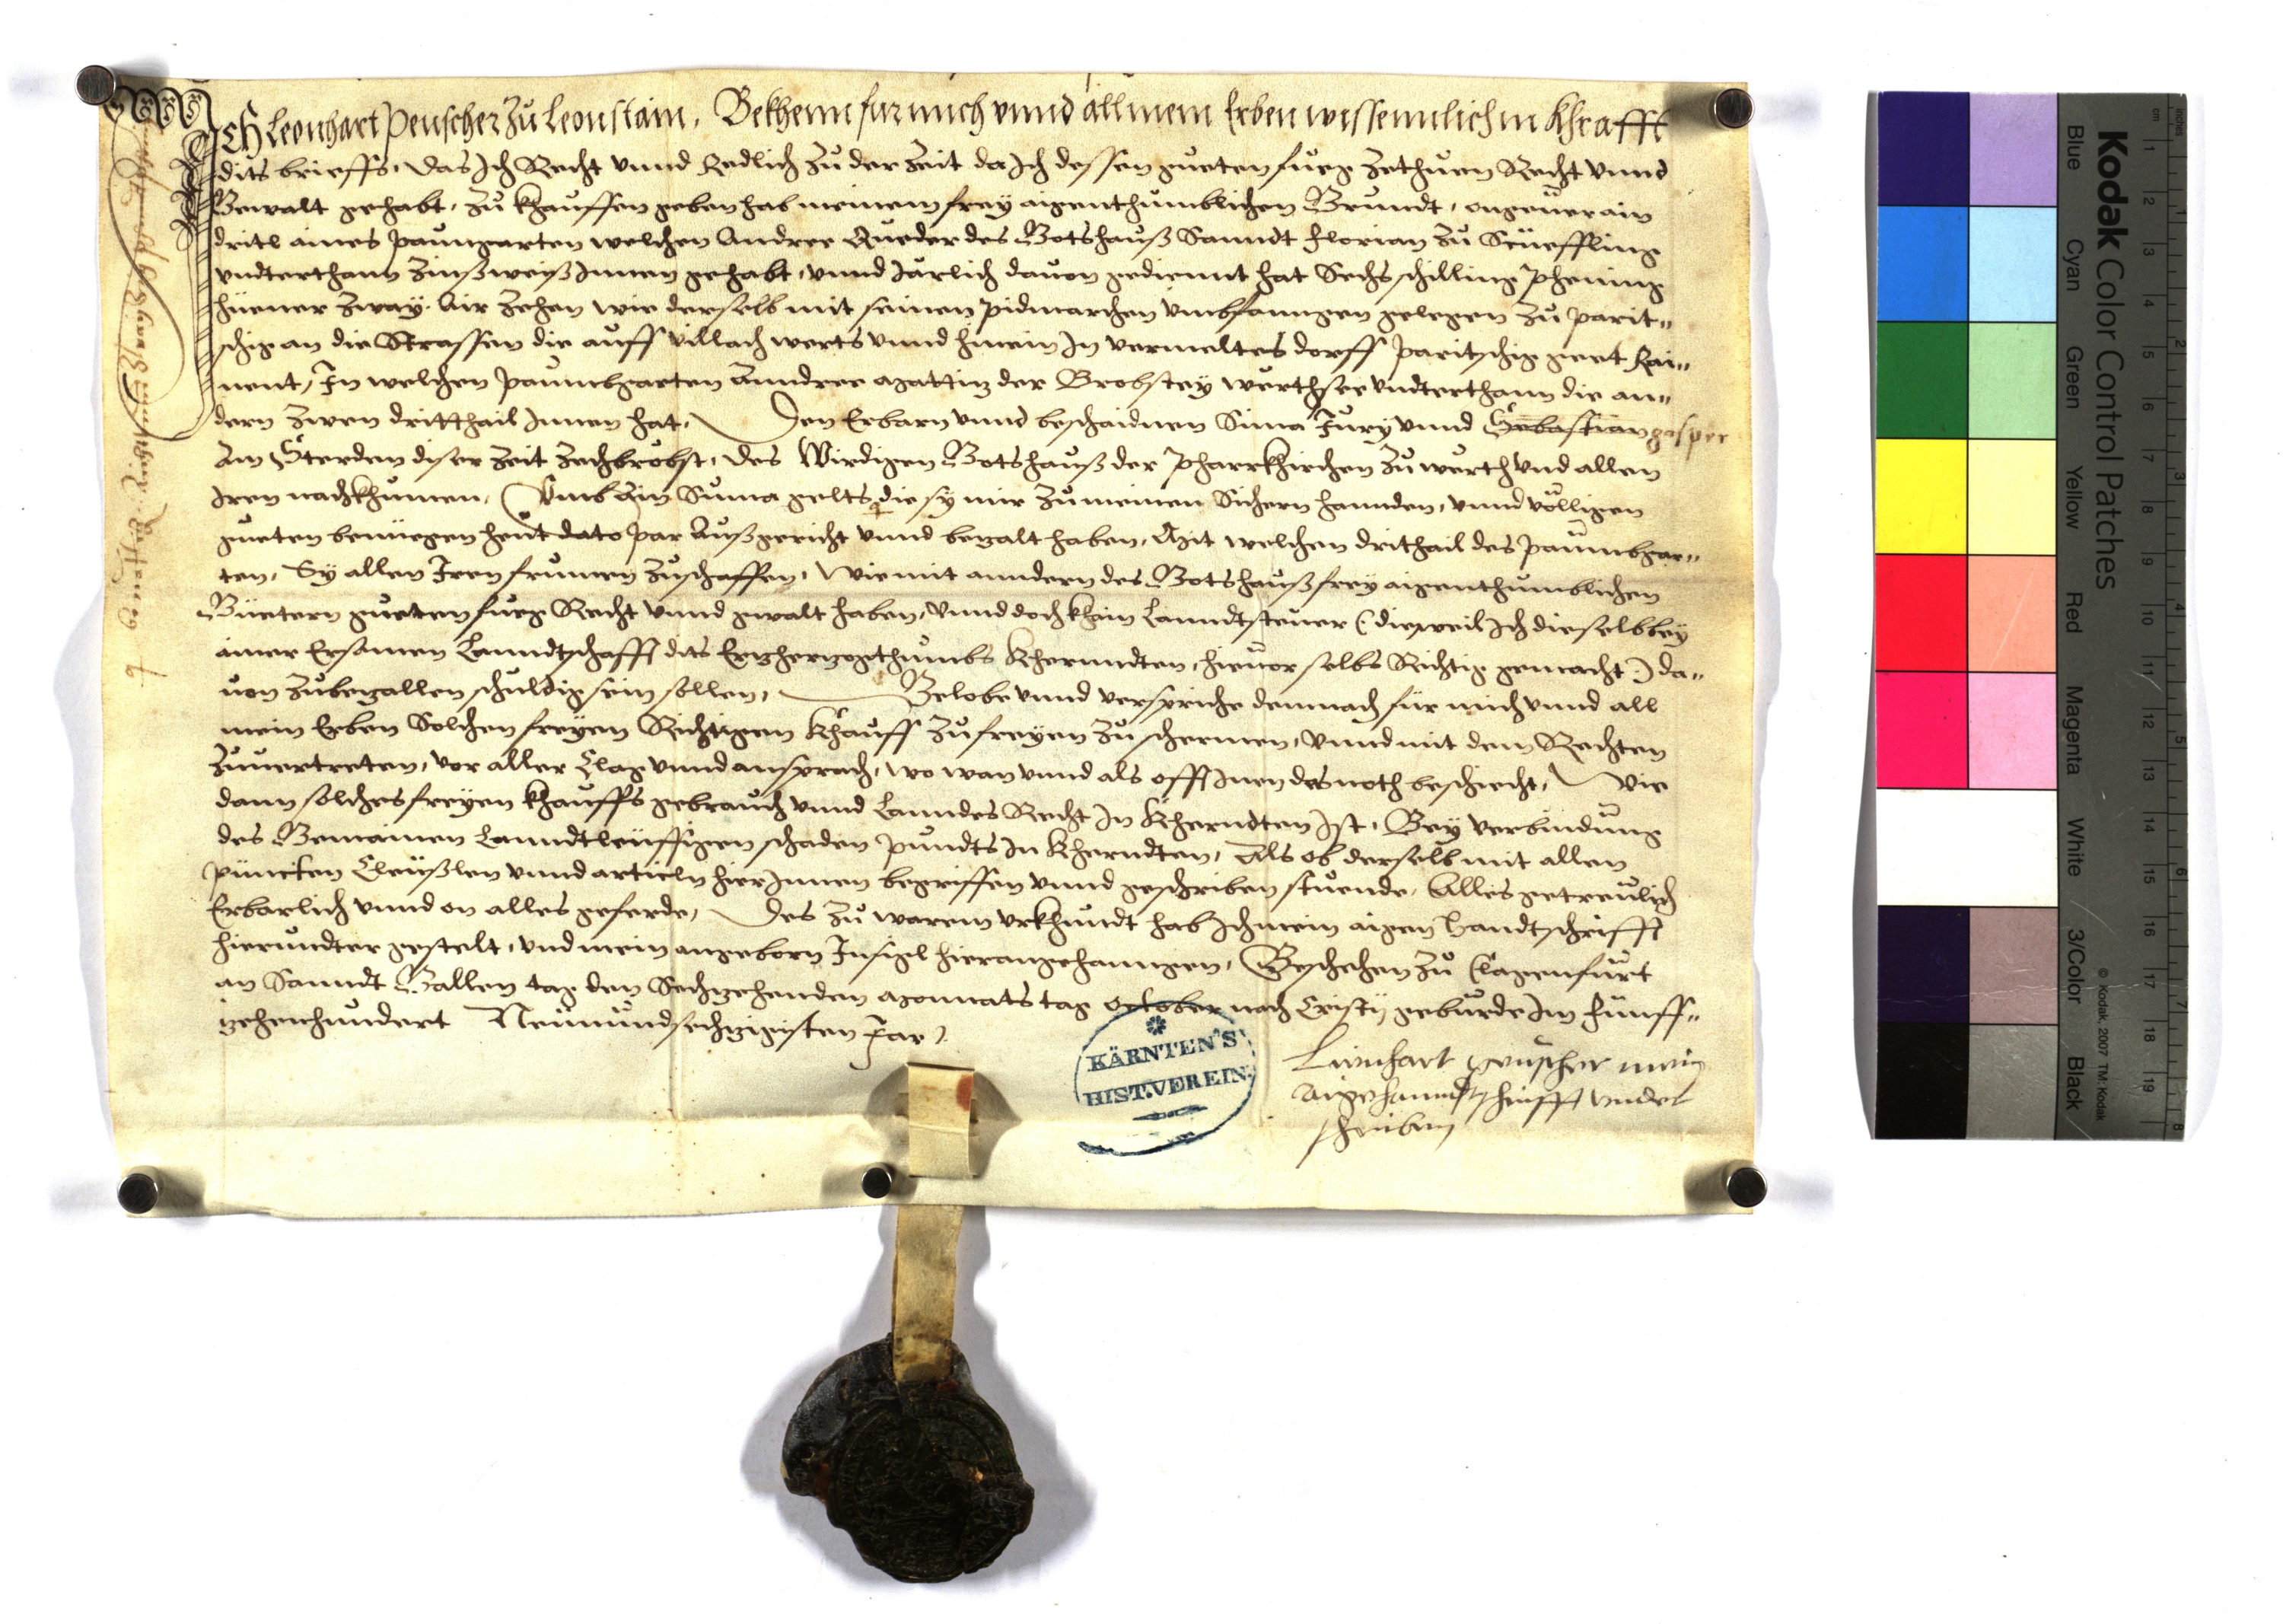 Ich Leonhart Penscher zu Leonstain, Bekhenn fur mich vnnd all mein Erben wissenntlich in Khrafft
dits brieffs, das Ich Recht vnnd Redlich zu der Zeit da Ich dessen gueten fueg zethuen Recht vnnd
Gewalt gehabt, zu khauffen geben hab meinem frey aigenthumblichen Grundt, ongeuer ain
dritl aines paumgarten welchen Andree Rueder des Gotshauß Sanndt Florian zu Stueffling
vndterthann Zinßweiß Innen gehabt, vnnd Järlich dauon gediennt hat Sechs schilling phening
hüener zway. Air zehen wie derselb mit seinen pidmarchen vmbfanngen gelegen zu parit„
schig an die Strassen die auff villach werts vnnd hinein In vermeltes dorff paritschig geet Rai„
nent, In welchen paumbgarten Anndree der Brobstey wurthsee vndterthann die an„
dern zwen dritthail Innen hat, Den Erbarn vnnd beschaidnen Sima Jury vnnd Sebastian gasper
Am Sterden diser Zeit Zechbröbst, des Wirdigen Gotshauß der Pharrkhirchen zu wurth vnd allen
Iren nachkhumen, Vmb ain Suma gelts die sy mir zu meinen Sichern hannden, vnnd völligen
gueten benüegen heut dato par Außgericht vnnd bezalt haben, Mit welchen drithail des paumbgar„
ten, Sy allen Iren frumen zuschaffen, Wie mit anndern des Gotshauß frey aigenthumblichen
Güetern gueten fueg Recht vnnd gwalt haben, vnnd doch khain Lanndtsteuer (dieweil Ich dieselb bey
ainer Ersamen Lanndtschafft dits Erzherzogthumbs Khernndten, hieuor selbs Richtig gemacht) da„
uon zubezallen schuldig sein sollen, Gelobe vnnd versprich demnach für mich vnnd all
mein Erben Solchen freyen Richtigen Khauff zu freyen zu schermen, vnnd mit dem Rechten
zuuertreten, vor aller Clag vnnd ansprach, wo wan vnnd als offt Inen des noth beschiecht, Wie
dann solches freyen khauffs gebrauch vnnd Lanndes Recht In Kherndten Ist, Bey verbindung
des Gemainen Lanndtleuffigen schaden pundts In Kherndten, Als ob derselb mit allen
puncten Cleußlen vnnd articln hierInnen begriffen vnnd geschriben stuende, Alles getreulich
Erbarlich vnnd on alles geferde, Des zu warem vrkhundt hab Ich mein aigen Handtschrifft
hierundter gestelt, vnd mein angeborn Insigl hierangehanngen, Geschehen zu Clagenfurt
an Sanndt Gallen tag den Sechzehenden monnats tag october nach Cristy geburde Im funff„
zehenhundert Neunundsechzigisten Jar,
Lienhart penscher mein
aigne hanndtschrifft vnder
schriben
KÄRNTEN'S
HIST. VEREIN.
Kodak Color Control Patches
© Kodak, 2007 TM: Kodak
Blue Cyan Green Yellow Red Magenta White 3/Color Black
inches 1 2 3 4 5 6 7 8
cm 1 2 3 4 5 6 7 8 9 10 11 12 13 14 15 16 17 18 19